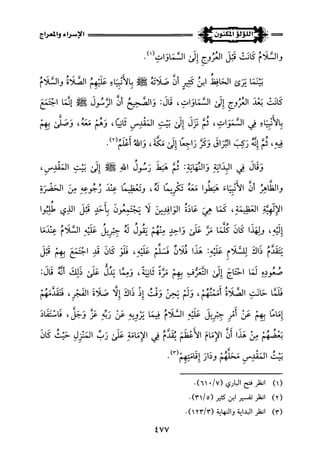 الإسراء والمعراج
اللؤلؤ المكنون
والسَّلَامُ كَانَتْ قَبْلَ العُرُوجِ إِلَى السَّمَاوَاتِ(١).
بَيْنَمَا يَرَى الحَافِظُ ابنُ كَثِيرٍ أنَّ صَلَاتَهُ ﷺ بِالأَنْبِيَاءِ عَلَيْهِمُ الصَّلَاةُ والسَّلَامُ
كَانَتْ بَعْدَ العُرُوجِ إِلَى السَّمَاوَاتِ، قَالَ: وَالصَّحِيحُ أَنَّ الرَّسُولَ ﷺ إِنَّمَا اجْتَمَعَ
بِالأَنْبِيَاءِ فِي السَّمَوَاتِ، ثُمَّ نَزَلَ إِلَى بَيْتِ المَقْدِسِ ثَانِيًا، وَهُمْ مَعَهُ، وَصَلَّى بِهِمْ
فِيهِ، ثُمَّ إِنَّهُ رَكِبَ البُرَاقَ وَكَرَّ رَاجِعًا إِلَى مَكَّةَ، وَاللهُ أَعْلَمُ(٢).
وَقَالَ فِي البِدَايَةِ وَالنِّهَايَةِ: ثُمَّ هَبَطَ رَسُولُ اللهِ ﷺ إِلَى بَيْتِ المَقْدِسِ،
وَالظَّاهِرُ أَنَّ الأَنْبِيَاءَ هَبَطُوا مَعَهُ تَكْرِيمًا لَهُ، وتَعْظِيمًا عِنْدَ رُجُوعِهِ مِنَ الحَضْرَةِ
الإِلَهِيَّةِ العَظِيمَةِ، كَمَا هِيَ عَادَةُ الوَافِدِينَ لَا يَجْتَمِعُونَ بِأَحَدٍ قَبْلَ الذي طُلِبُوا
إِلَيْهِ، ولِهَذَا كَانَ كُلَّمَا مَرَّ عَلَى وَاحِدٍ مِنْهُمْ يَقُولُ لَهُ جِبْرِيلُ عَلَيْهِ السَّلَامُ عِنْدَمَا
يَتَقَدَّمُ ذَاكَ لِلسَّلَامِ عَلَيْهِ: هَذَا فُلَانٌ فَسَلِّمْ عَلَيْهِ، فَلَوْ كَانَ قَدِ اجْتَمَعَ بِهِمْ قَبْلَ
صُعُودِهِ لَمَا احْتَاجَ إِلَى التَّعَرُّفِ بِهِمْ مَرَّةً ثَانِيَةً، وَمِمَّا يَدُلُّ عَلَى ذَلِكَ أَنَّهُ قَالَ:
فَلَمَّا حَانَتِ الصَّلَاةُ أَمَمْتُهُمْ، وَلَمْ يَحِنْ وَقْتُ إِذْ ذَاكَ إِلَّا صَلَاةَ الفَجْرِ، فَتَقَدَّمَهُمْ
إِمَامًا بِهِمْ عَنْ أَمْرِ جِبْرِيلَ عَلَيْهِ السَّلَامُ فِيمَا يَرْوِيهِ عَنْ رَبِّهِ عَزَّ وَجَلَّ، فَاسْتَفَادَ
بَعْضُهُمْ مِنْ هَذَا أَنَّ الإِمَامَ الأَعْظَمَ يُقَدَّمُ فِي الإِمَامَةِ عَلَى رَبِّ المَنْزِلِ حَيْثُ كَانَ
بَيْتُ المَقْدِسِ مَحَلَّهُمْ ودَارَ إِقَامَتِهِمْ(٣).
(١) انظر فتح الباري (٦١٠/٧).
(٢) انظر تفسير ابن كثير (٣١/٥).
(٣) انظر البداية والنهاية (١٢٣/٣).
٤٧٧